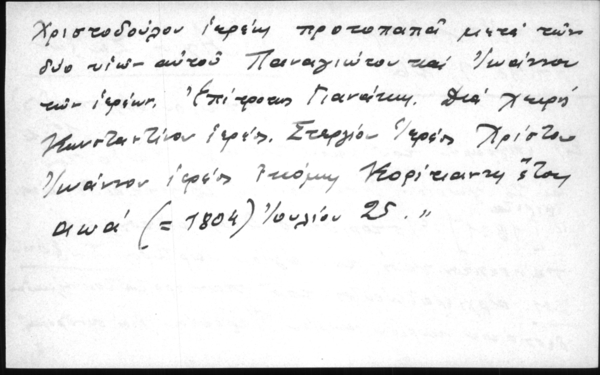 Χριστοδούλου ἱερέως πρωτοπαπᾶ μετὰ τῶν
δύο υἱῶν αὐτοῦ Παναγιώτου καὶ Ἰωάννου
τῶν ἱερέων. Ἐπίτροπος Πανάτης. Διὰ χειρὸς
Κωνσταντίνου ἱερέως. Στεργίου ἱερέως Χρίστου
Ἰωάννου ἱερέως ἔτους
αωά (= 1804) Ἰουλίου 25."